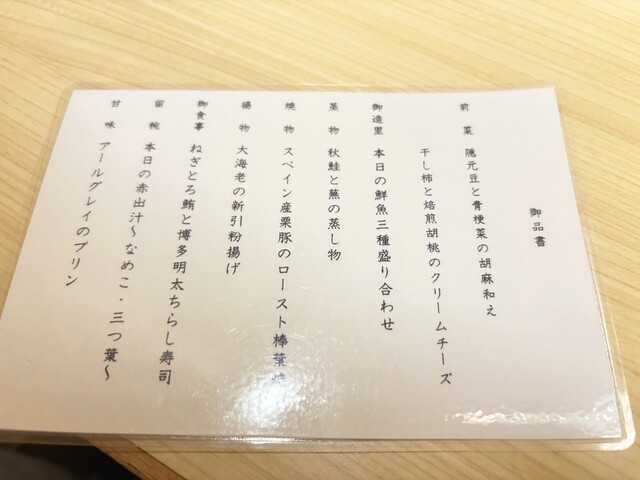 御品書
前菜 隠元豆と青梗菜の胡麻和え
干し柿と焙煎胡桃のクリームチーズ
御造里 本日の鮮魚三種盛り合わせ
蒸物 秋鮭と蕪の蒸し物
焼物 スペイン産栗豚のロースト棒葉焼
揚物 大海老の新引粉揚げ
御食事 ねぎとろ鮪と博多明太ちらし寿司
留椀 本日の赤出汁〜なめこ・三つ葉〜
甘味 アールグレイのプリン